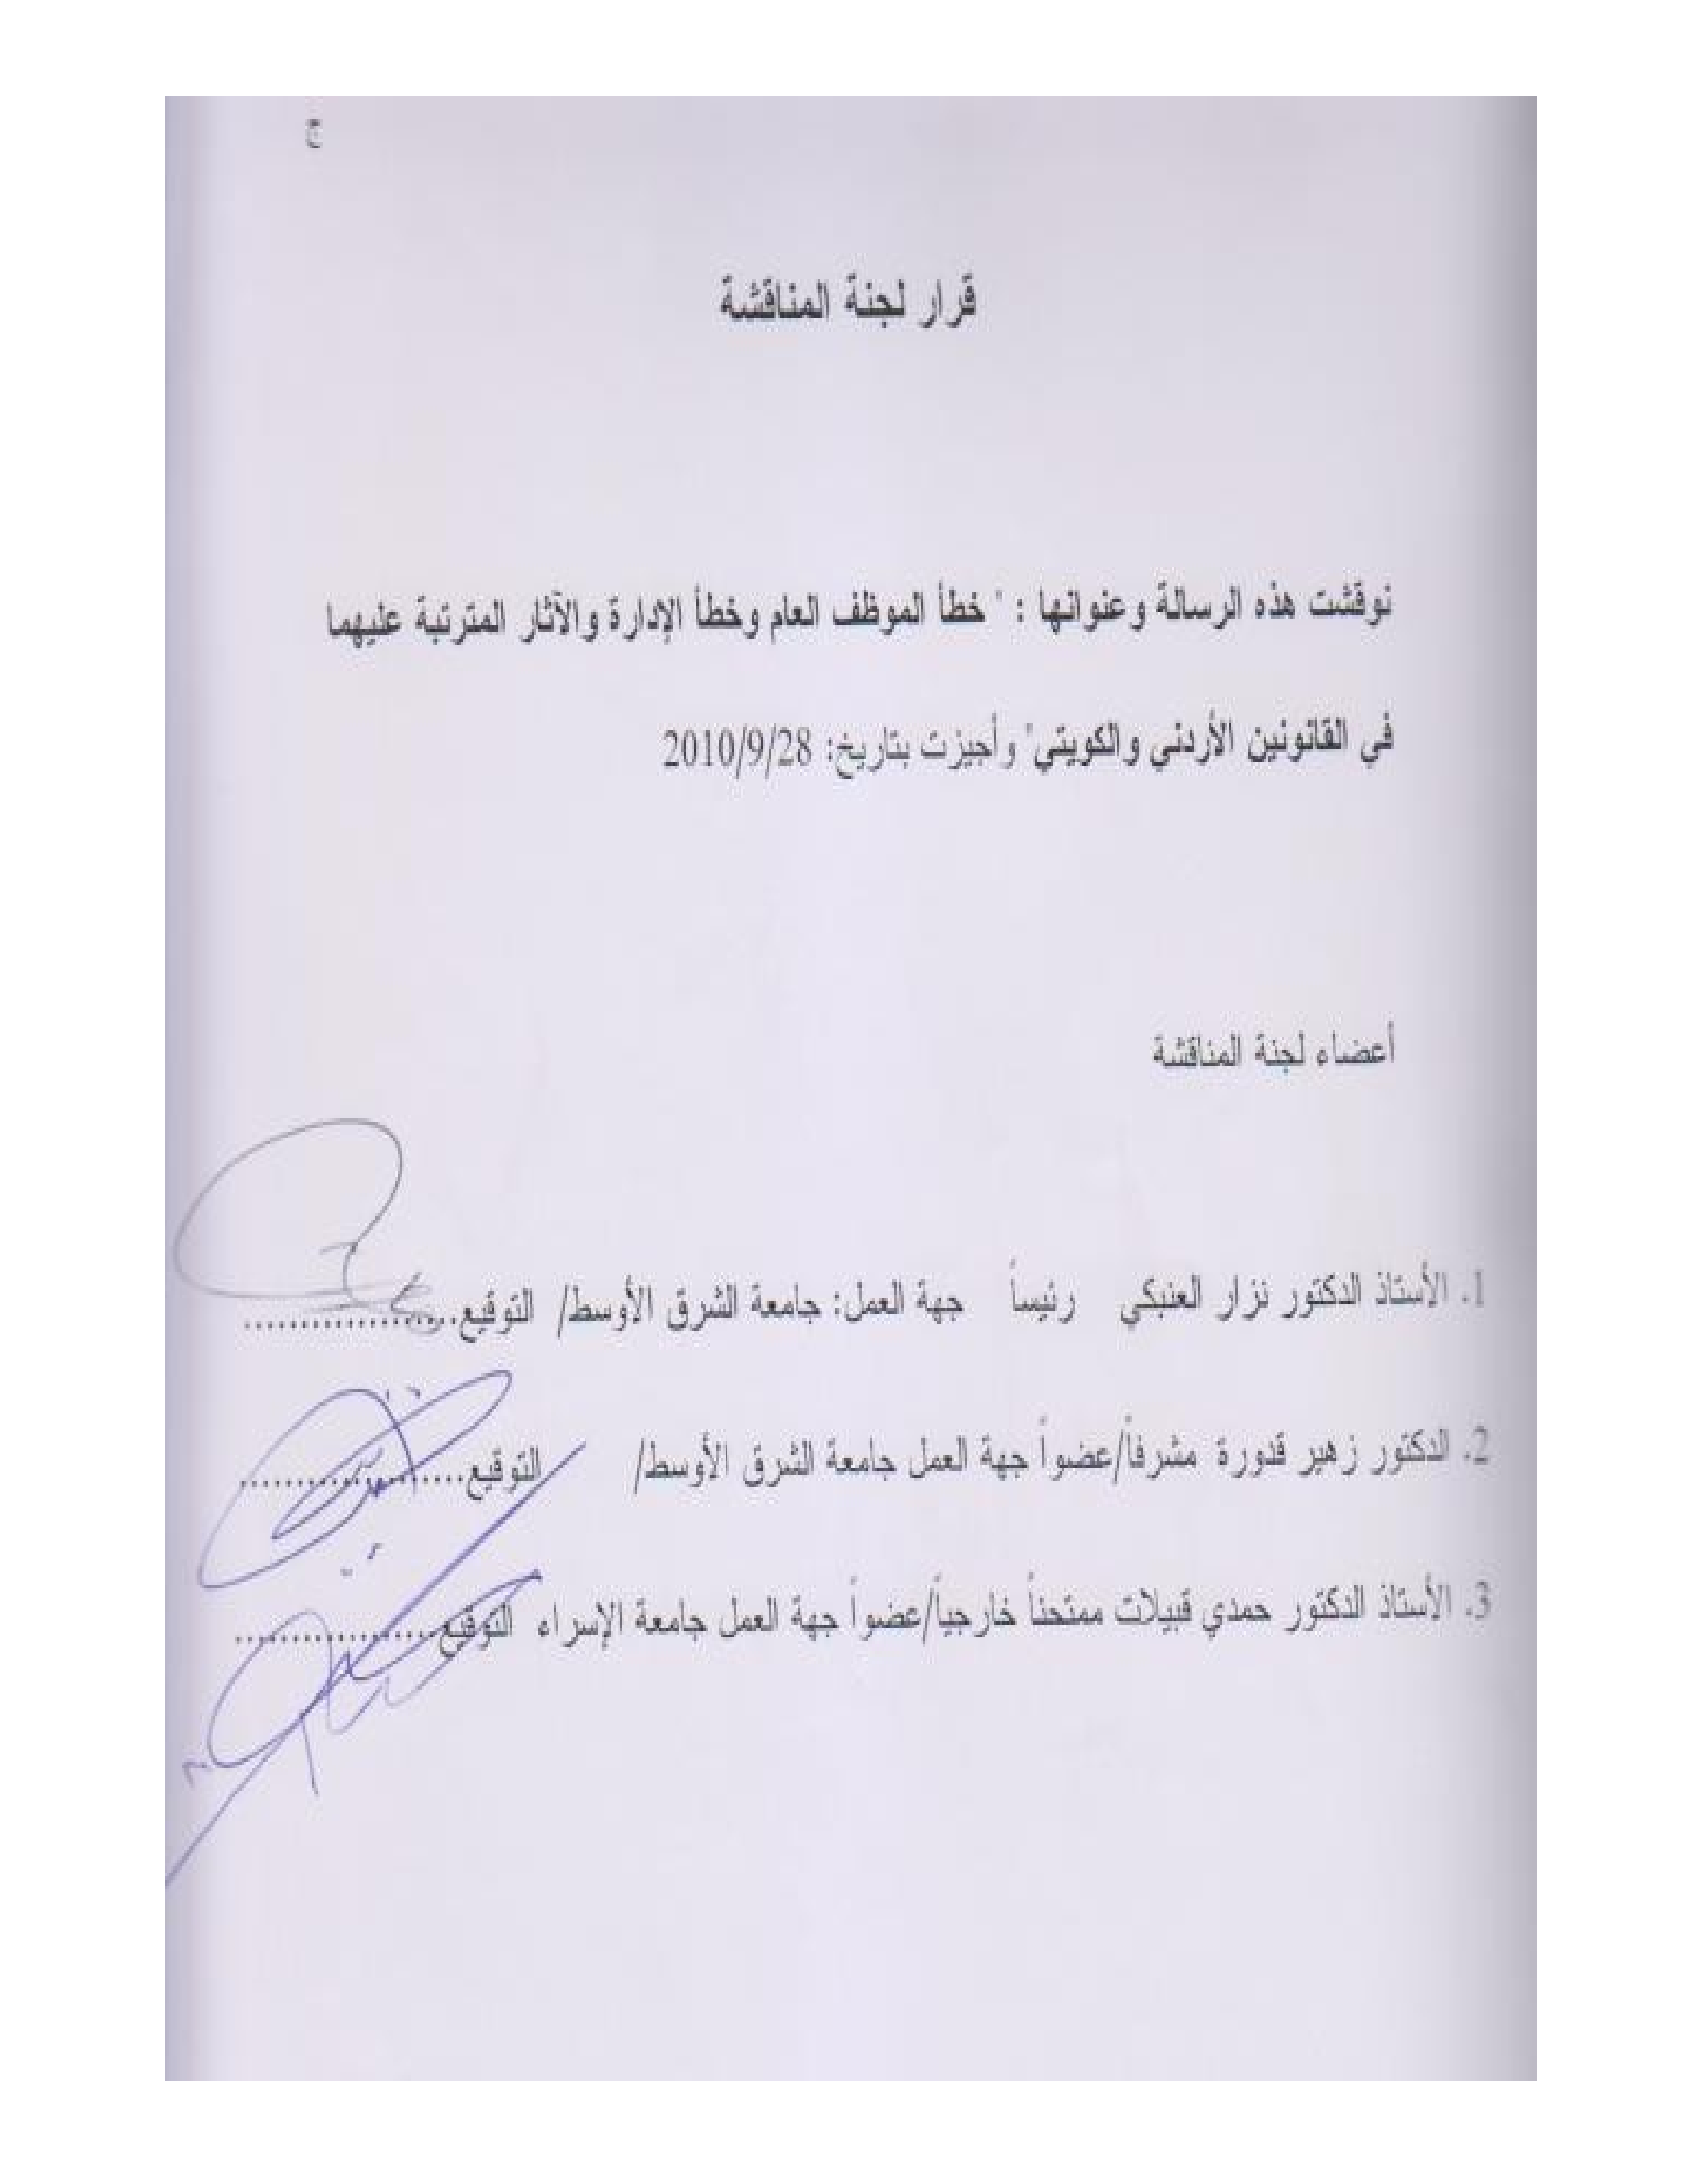 ج
قرار لجنة المناقشة
نوقشت هذه الرسالة وعنوانها : " خطأ الموظف العام وخطأ الإدارة والآثار المترتبة عليهما
في القانونين الأردني والكويتي" وأجيزت بتاريخ: 2010/9/28
أعضاء لجنة المناقشة
1. الأستاذ الدكتور نزار العنبكي رئيساً جهة العمل: جامعة الشرق الأوسط/ التوقيع....................
2. الدكتور زهير قدورة مشرفاً/عضواً جهة العمل جامعة الشرق الأوسط/ التوقيع....................
3. الأستاذ الدكتور حمدي قبيلات ممتحناً خارجياً/عضواً جهة العمل جامعة الإسراء التوقيع....................